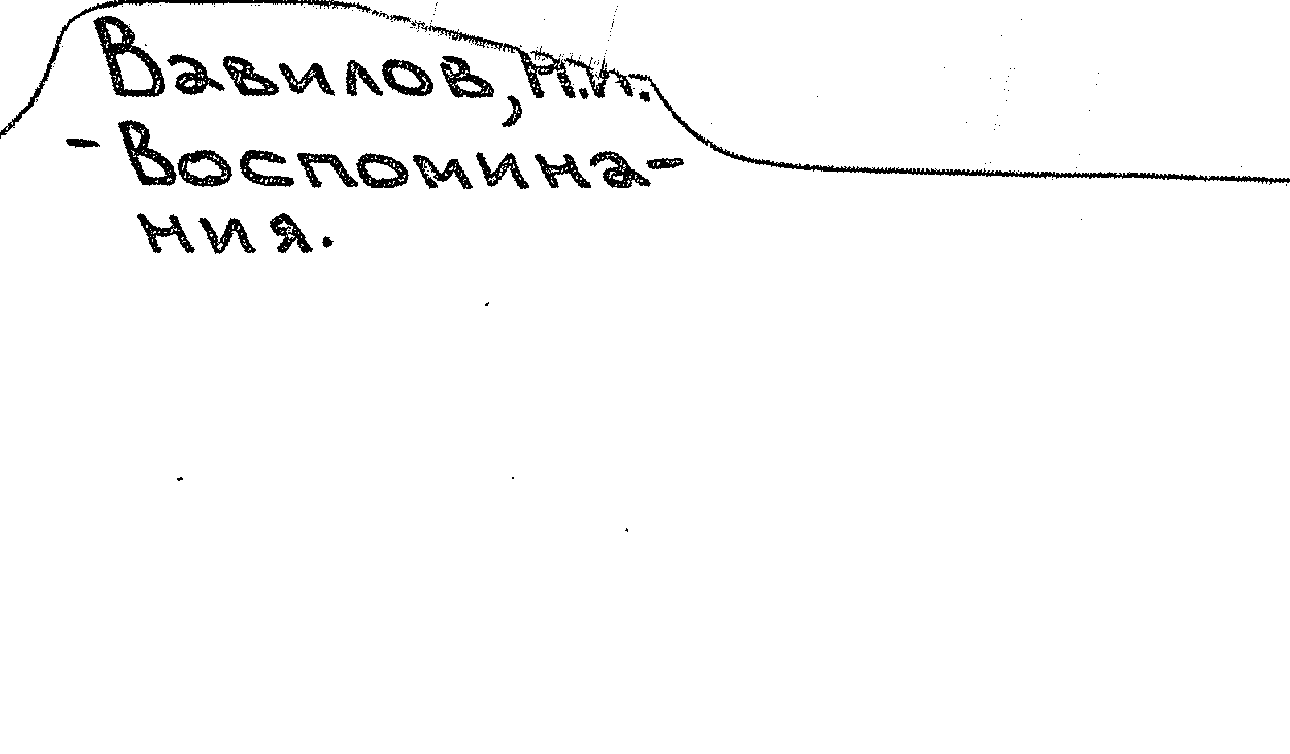 Вавилов, Н.И.
- Воспомина-
ния.